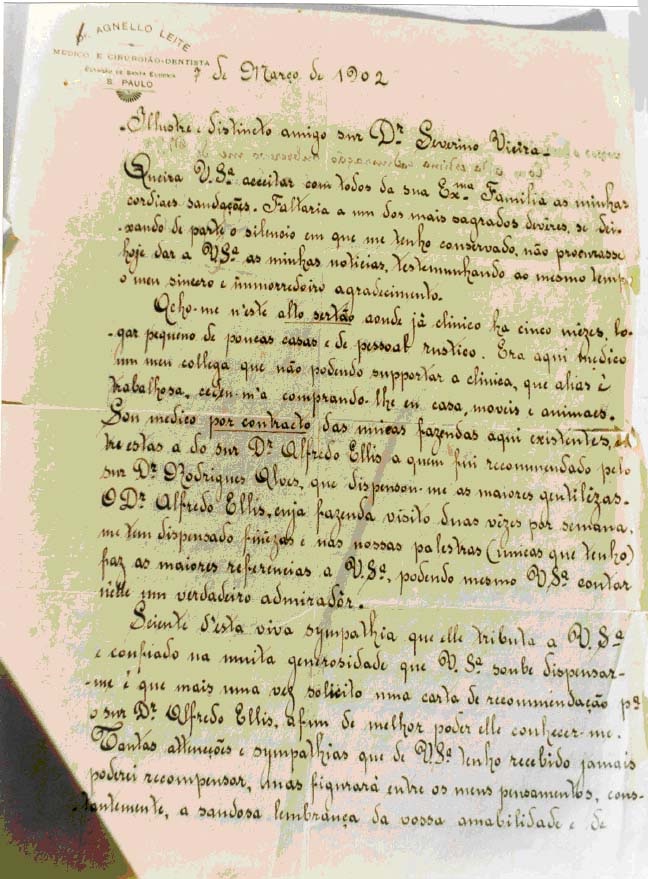 Dr. AGNELLO LEITE
MEDICO E CIRURGIÃO-DENTISTA
ESTAÇÃO DE SANTA EUDOXIA
S. PAULO
7 de Março de 1902
Illustre e distincto amigo snr Dr. Severino Vieira
Queira V. Sª acceitar com todos da sua Exma Familia as minhas
cordiaes saudações. Faltaria a um dos mais sagrados deveres, se dei-
xando de parte o silencio em que me tenho conservado, não procurasse
hoje dar a V. Sª as minhas noticias, testemunhando ao mesmo tempo
o meu sincero e immorredoiro agradecimento.
Acho-me n'este alto sertão aonde já clinico ha cinco mêzes, lo-
gar pequeno de poucas casas e de pessoal rustico. Era aqui medico
um meu collega que não podendo supportar a clinica, que alias é
trabalhosa, cedeu-m'a comprando-lhe eu casa, moveis e animaes.
Sou medico por contracto das unicas fazendas aqui existentes, en-
tre estas a do snr Dr. Alfredo Ellis a quem fui recommendado pelo
snr Dr. Rodrigues Alves, que dispensou-me as maiores gentilêzas.
O Dr. Alfredo Ellis, cuja fazenda visito duas vêzes por semana,
me tem dispensado finêzas e nas nossas palestras (unicas que tenho)
faz as maiores referencias a V. Sª, podendo mesmo V. Sª contar
n'elle um verdadeiro admiradôr.
Sciente d'esta viva sympathia que elle tributa a V. Sª
e confiado na muita generosidade que V. Sª soube dispensar-
me é que mais uma vez solicito uma carta de recommendação pª
o snr Dr. Alfredo Ellis, afim de melhor poder elle conhecer-me.
Tantas attenções e sympathias que de V. Sª tenho recebido jamais
poderei recompensar, mas figurará entre os meus pensamentos, cons-
tantemente, a saudosa lembrança da vossa amabilidade e de